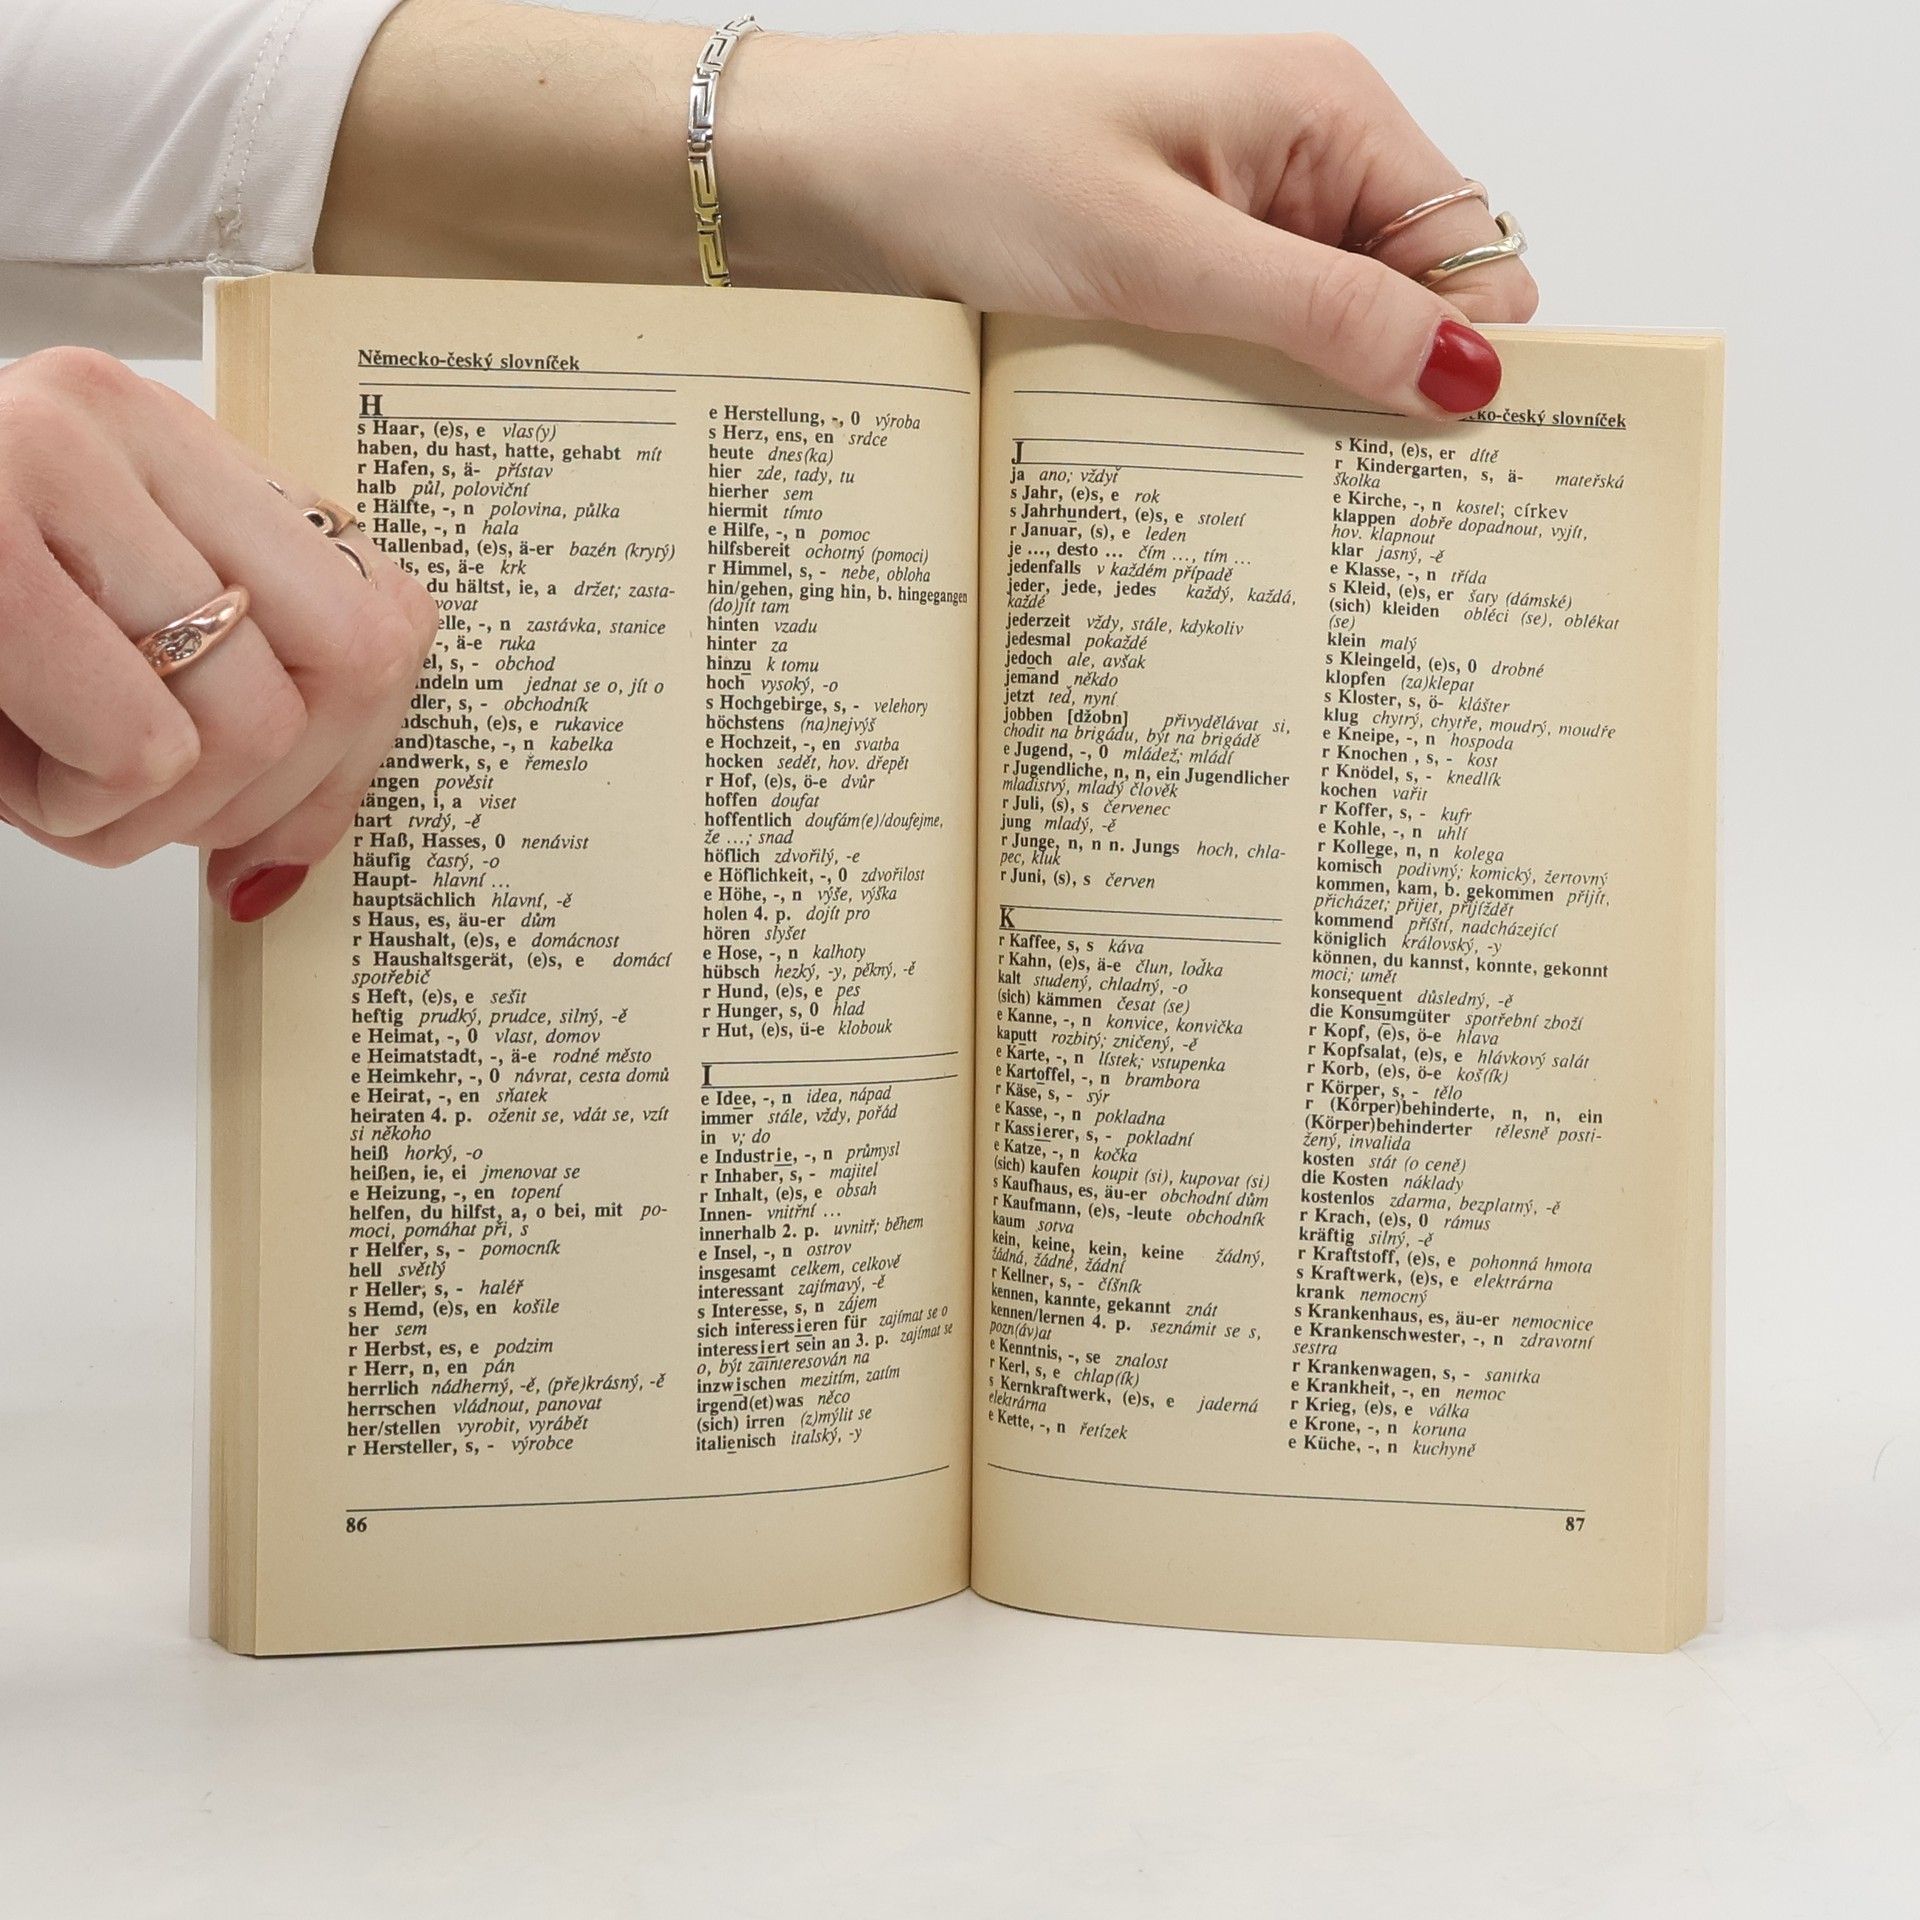 Německo-český slovníček
H
s Haar, (e)s, e vlas(y)
haben, du hast, hatte, gehabt mít
r Hafen, s, ä- přístav
halb půl, poloviční
e Hälfte, -, n polovina, půlka
e Halle, -, n hala
Hallenbad, (e)s, ä-er bazén (krytý)
es, ä-e krk
du hältst, ie, a držet; zasta-
-, n zastávka, stanice
-, ä-e ruka
s, - obchod
um jednat se o, jít o
s, - obchodník
(e)s, e rukavice
-, n kabelka
s, e řemeslo
pověsit
i, a viset
hart tvrdý, -ě
r Haß, Hasses, 0 nenávist
häufig častý, -o
Haupt- hlavní ...
hauptsächlich hlavní, -ě
s Haus, es, äu-er dům
r Haushalt, (e)s, e domácnost
s Haushaltsgerät, (e)s, e domácí
spotřebič
s Heft, (e)s, e sešit
heftig prudký, prudce, silný, -ě
e Heimat, -, 0 vlast, domov
e Heimatstadt, -, ä-e rodné město
e Heimkehr, -, 0 návrat, cesta domů
e Heirat, -, en sňatek
heiraten 4. p. oženit se, vdát se, vzít
si někoho
heiß horký, -o
heißen, ie, ei jmenovat se
e Heizung, -, en topení
helfen, du hilfst, a, o bei, mit po-
moci, pomáhat při, s
r Helfer, s, - pomocník
hell světlý
r Heller, s, - haléř
s Hemd, (e)s, en košile
her sem
r Herbst, es, e podzim
r Herr, n, en pán
herrlich nádherný, -ě, (pře)krásný, -ě
herrschen vládnout, panovat
her/stellen vyrobit, vyrábět
r Hersteller, s, - výrobce
e Herstellung, -, 0 výroba
s Herz, ens, en srdce
heute dnes(ka)
hier zde, tady, tu
hierher sem
hiermit tímto
e Hilfe, -, n pomoc
hilfsbereit ochotný (pomoci)
r Himmel, s, - nebe, obloha
hin/gehen, ging hin, b. hingegangen
(do)jít tam
hinten vzadu
hinter za
hinzu k tomu
hoch vysoký, -o
s Hochgebirge, s, - velehory
höchstens (na)nejvýš
e Hochzeit, -, en svatba
hocken sedět, hov. dřepět
r Hof, (e)s, ö-e dvůr
hoffen doufat
hoffentlich doufám(e)/doufejme,
že ...; snad
höflich zdvořilý, -e
e Höflichkeit, -, 0 zdvořilost
e Höhe, -, n výše, výška
holen 4. p. dojít pro
hören slyšet
e Hose, -, n kalhoty
hübsch hezký, -y, pěkný, -ě
r Hund, (e)s, e pes
r Hunger, s, 0 hlad
r Hut, (e)s, ü-e klobouk
I
e Idee, -, n idea, nápad
immer stále, vždy, pořád
in v; do
e Industrie, -, n průmysl
r Inhaber, s, - majitel
r Inhalt, (e)s, e obsah
Innen- vnitřní ...
innerhalb 2. p. uvnitř; během
e Insel, -, n ostrov
insgesamt celkem, celkově
interessant zajímavý, -ě
s Interesse, s, n zájem
sich interessieren für zajímat se o
interessiert sein an 3. p. zajímat se
o, být zainteresován na
inzwischen mezitím, zatím
irgend(et)was něco
(sich) irren (z)mýlit se
italienisch italský, -y
86
slovníček
J
ja ano; vždyť
s Jahr, (e)s, e rok
s Jahrhundert, (e)s, e století
r Januar, (s), e leden
je ..., desto ... čím ..., tím ...
jedenfalls v každém případě
jeder, jede, jedes každý, každá,
každé
jederzeit vždy, stále, kdykoliv
jedesmal pokaždé
jedoch ale, avšak
jemand někdo
jetzt teď, nyní
jobben [džobn] přivydělávat si,
chodit na brigádu, být na brigádě
e Jugend, -, 0 mládež; mládí
r Jugendliche, n, n, ein Jugendlicher
mladistvý, mladý člověk
r Juli, (s), s červenec
jung mladý, -ě
r Junge, n, n n. Jungs hoch, chla-
pec, kluk
r Juni, (s), s červen
K
r Kaffee, s, s káva
r Kahn, (e)s, ä-e člun, loďka
kalt studený, chladný, -o
(sich) kämmen česat (se)
e Kanne, -, n konvice, konvička
kaputt rozbitý; zničený, -ě
e Karte, -, n lístek; vstupenka
e Kartoffel, -, n brambora
r Käse, s, - sýr
e Kasse, -, n pokladna
r Kassierer, s, - pokladní
e Katze, -, n kočka
(sich) kaufen koupit (si), kupovat (si)
s Kaufhaus, es, äu-er obchodní dům
r Kaufmann, (e)s, -leute obchodník
kaum sotva
kein, keine, kein, keine žádný,
žádná, žádné, žádní
r Kellner, s, - číšník
kennen, kannte, gekannt znát
kennen/lernen 4. p. seznámit se s,
pozn(áv)at
e Kenntnis, -, se znalost
r Kerl, s, e chlap(ík)
s Kernkraftwerk, (e)s, e jaderná
elektrárna
e Kette, -, n řetízek
s Kind, (e)s, er dítě
r Kindergarten, s, ä- mateřská
školka
e Kirche, -, n kostel; církev
klappen dobře dopadnout, vyjít,
hov. klapnout
klar jasný, -ě
e Klasse, -, n třída
s Kleid, (e)s, er šaty (dámské)
(sich) kleiden obléci (se), oblékat
(se)
klein malý
s Kleingeld, (e)s, 0 drobné
klopfen (za)klepat
s Kloster, s, ö- klášter
klug chytrý, chytře, moudrý, moudře
e Kneipe, -, n hospoda
r Knochen , s, - kost
r Knödel, s, - knedlík
kochen vařit
r Koffer, s, - kufr
e Kohle, -, n uhlí
r Kollege, n, n kolega
komisch podivný; komický, žertovný
kommen, kam, b. gekommen přijít,
přicházet; přijet, přijíždět
kommend příští, nadcházející
königlich královský, -y
können, du kannst, konnte, gekonnt
moci; umět
konsequent důsledný, -ě
die Konsumgüter spotřební zboží
r Kopf, (e)s, ö-e hlava
r Kopfsalat, (e)s, e hlávkový salát
r Korb, (e)s, ö-e koš(ík)
r Körper, s, - tělo
r (Körper)behinderte, n, n, ein
(Körper)behinderter tělesně posti-
žený, invalida
kosten stát (o ceně)
die Kosten náklady
kostenlos zdarma, bezplatný, -ě
r Krach, (e)s, 0 rámus
kräftig silný, -ě
r Kraftstoff, (e)s, e pohonná hmota
s Kraftwerk, (e)s, e elektrárna
krank nemocný
s Krankenhaus, es, äu-er nemocnice
e Krankenschwester, -, n zdravotní
sestra
r Krankenwagen, s, - sanitka
e Krankheit, -, en nemoc
r Krieg, (e)s, e válka
e Krone, -, n koruna
e Küche, -, n kuchyně
87